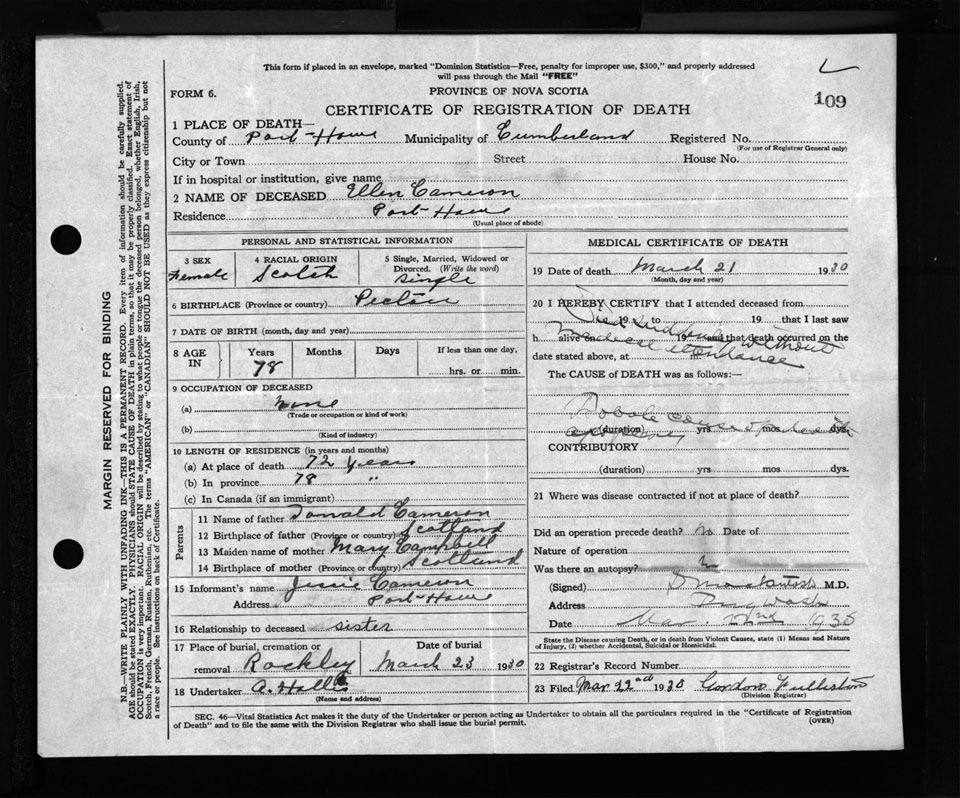 This form if placed in an envelope, marked "Dominion Statistics—Free, penalty for improper use, $300," and properly addressed
will pass through the Mail "FREE"
FORM 6.
PROVINCE OF NOVA SCOTIA
109
CERTIFICATE OF REGISTRATION OF DEATH
1 PLACE OF DEATH—
County of Port-Howe Municipality of Cumberland Registered No.
(For use of Registrar General only)
City or Town Street House No.
If in hospital or institution, give name
2 NAME OF DECEASED Ellen Cameron
Residence Port-Howe
(Usual place of abode)
PERSONAL AND STATISTICAL INFORMATION
3 SEX 4 RACIAL ORIGIN 5 Single, Married, Widowed or
Divorced. (Write the word)
Female Scotch Single
6 BIRTHPLACE (Province or country) Pictou
7 DATE OF BIRTH (month, day and year)
8 AGE IN Years Months Days If less than one day,
78 hrs. or min.
9 OCCUPATION OF DECEASED
(a) None
(Trade or occupation or kind of work)
(b)
(Kind of industry)
10 LENGTH OF RESIDENCE (in years and months)
(a) At place of death 72 years
(b) In province 78 "
(c) In Canada (if an immigrant)
Parents
11 Name of father Donald Cameron
12 Birthplace of father (Province or country) Scotland
13 Maiden name of mother Mary Campbell
14 Birthplace of mother (Province or country) Scotland
15 Informant's name Jessie Cameron
Address Port-Howe
16 Relationship to deceased sister
17 Place of burial, cremation or removal Rockley Date of burial March 23 1930
18 Undertaker A. Hall
(Name and address)
MEDICAL CERTIFICATE OF DEATH
19 Date of death March 21 1930
(Month, day and year)
20 I HEREBY CERTIFY that I attended deceased from
19 to 19 that I last saw
h alive on 19 and that death occurred on the
date stated above, at m.
Died suddenly without
medical attendance
The CAUSE of DEATH was as follows:—
cause of death
apoplexy
(duration) yrs mos dys.
CONTRIBUTORY
(duration) yrs mos dys.
21 Where was disease contracted if not at place of death?
Did an operation precede death? No Date of
Nature of operation
Was there an autopsy?
(Signed) D Mackintosh M.D.
Address Pugwash
Date Mar. 22nd 1930
State the Disease causing Death, or in death from Violent Causes, state (1) Means and Nature
of Injury, (2) whether Accidental, Suicidal or Homicidal.
22 Registrar's Record Number
23 Filed Mar 22nd 1930 Gordon
(Division Registrar)
SEC. 46—Vital Statistics Act makes it the duty of the Undertaker or person acting as Undertaker to obtain all the particulars required in the "Certificate of Registration
of Death" and to file the same with the Division Registrar who shall issue the burial permit.
(OVER)
MARGIN RESERVED FOR BINDING
N.B.—WRITE PLAINLY WITH UNFADING INK—THIS IS A PERMANENT RECORD. Every item of information should be carefully supplied.
AGE should be stated EXACTLY. PHYSICIANS should STATE CAUSE OF DEATH in plain terms, so that it may be properly classified. Exact statement of
OCCUPATION is very important. RACIAL ORIGIN will be described by stating to what people or tongue the deceased person belonged, whether English, Irish,
Scotch, French, German, Russian, Ruthenian, etc. The terms "AMERICAN" or "CANADIAN" SHOULD NOT BE USED as they express citizenship but not
a race or people. See instructions on back of Certificate.